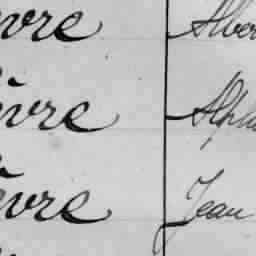 èvre Alber
èvre Alpho
èvre Jean